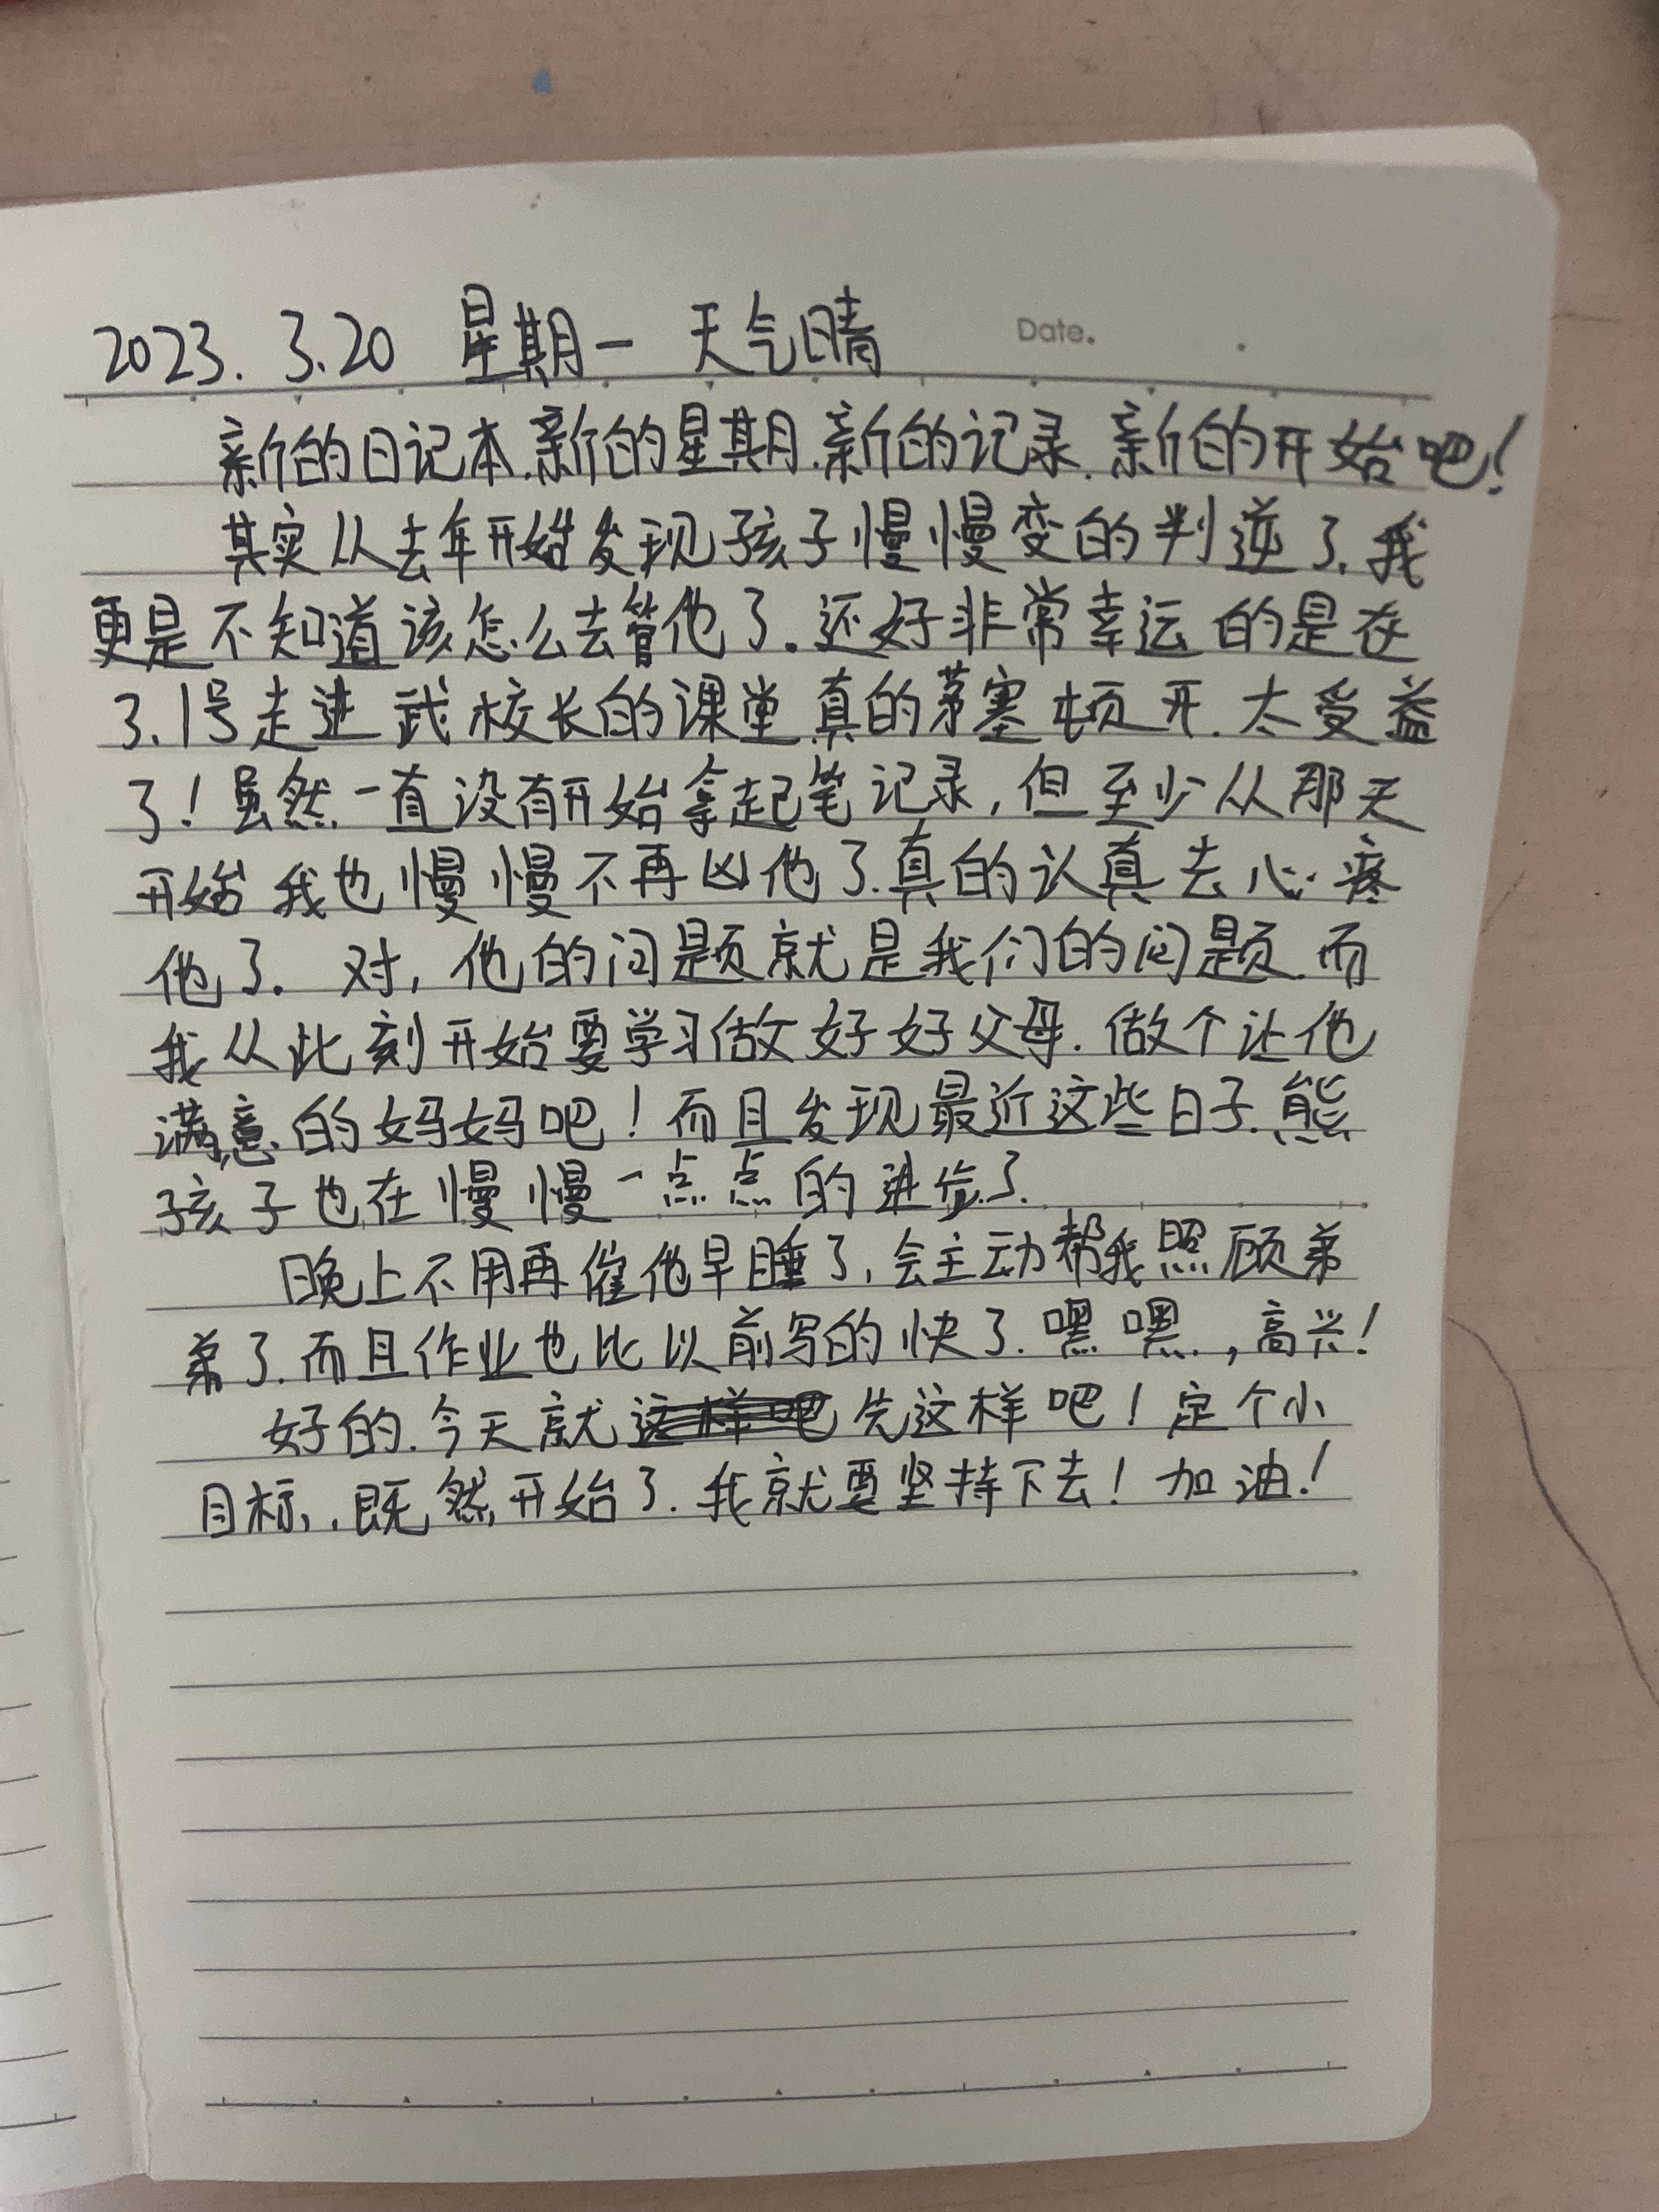 2023. 3.20 星期一 天气晴
Date.
新的日记本.新的星期.新的记录.新的开始吧！
其实从去年开始发现孩子慢慢变的判逆了.我
更是不知道该怎么去管他了。还好非常幸运的是在
3.1号走进武校长的课堂.真的茅塞顿开.太受益
了！虽然一直没有开始拿起笔记录,但至少从那天
开始我也慢慢不再凶他了.真的认真去心疼
他了. 对,他的问题就是我们的问题.而
我从此刻开始要学习做好好父母.做个让他
满意的妈妈吧！而且发现最近这些日子.熊
孩子也在慢慢一点点的进步了.
晚上不用再催他早睡了,会主动帮我照顾弟
弟了.而且作业也比以前写的快了.嘿嘿,高兴!
好的.今天就先这样吧！定个小
目标,.既然开始了.我就要坚持下去！加油！